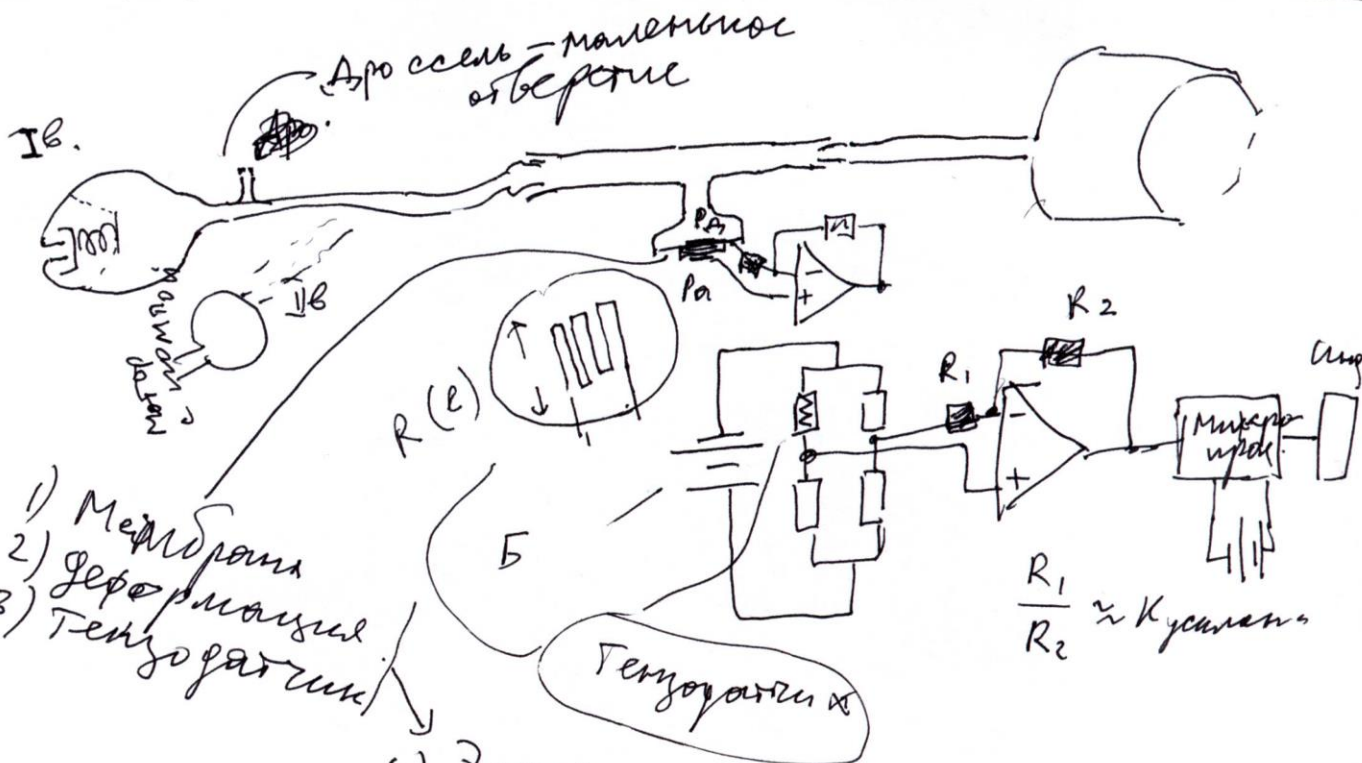 Дроссель – маленькое
отверстие
Iв.
Др.
IIв
Pд
Pа
R(l)
R2
R1
Микро
проц.
- 
+
-
+
Б
1) Мембрана
2) Деформация
3) Тензодатчик
Тензодатчик
R1
R2
≈ Kусилен